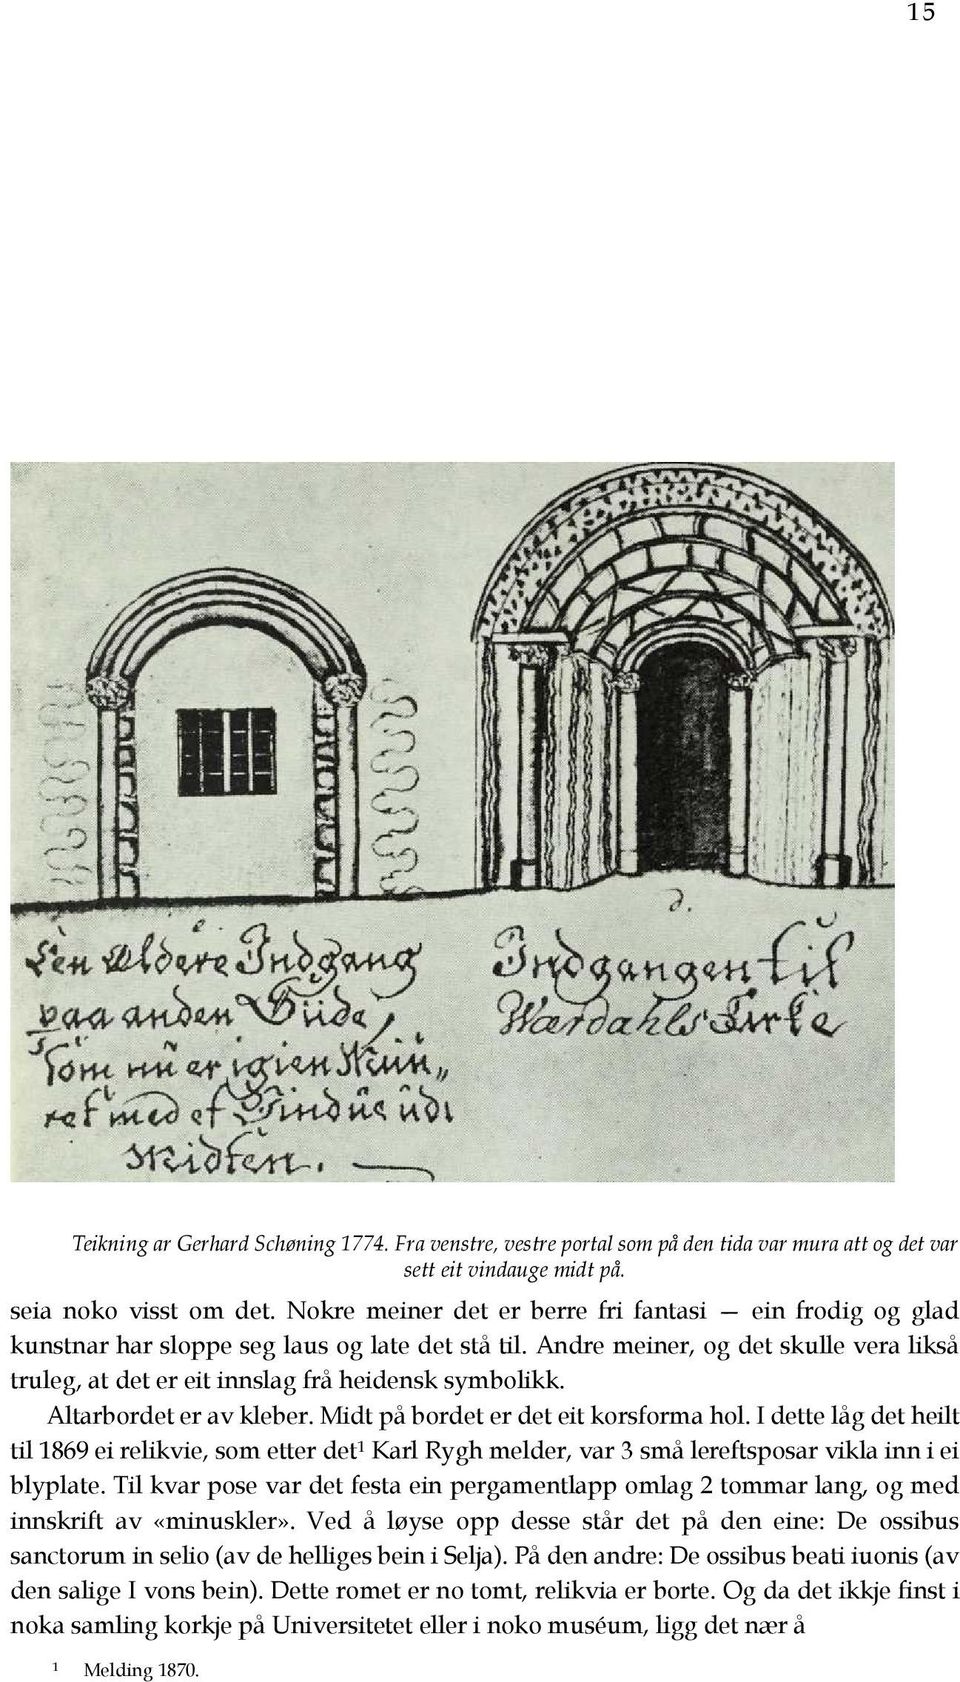 15
e.
d.
Een Eldere Indgang
paa anden Siide,
Som nu er igien Muu„
ret med et Vindue udi
Midten.
Indgangen til
Wærdahls Kirke
Teikning ar Gerhard Schøning 1774. Fra venstre, vestre portal som på den tida var mura att og det var
sett eit vindauge midt på.
seia noko visst om det. Nokre meiner det er berre fri fantasi — ein frodig og glad
kunstnar har sloppe seg laus og late det stå til. Andre meiner, og det skulle vera likså
truleg, at det er eit innslag frå heidensk symbolikk.
Altarbordet er av kleber. Midt på bordet er det eit korsforma hol. I dette låg det heilt
til 1869 ei relikvie, som etter det¹ Karl Rygh melder, var 3 små lereftsposar vikla inn i ei
blyplate. Til kvar pose var det festa ein pergamentlapp omlag 2 tommar lang, og med
innskrift av «minuskler». Ved å løyse opp desse står det på den eine: De ossibus
sanctorum in selio (av de helliges bein i Selja). På den andre: De ossibus beati iuonis (av
den salige I vons bein). Dette romet er no tomt, relikvia er borte. Og da det ikkje finst i
noka samling korkje på Universitetet eller i noko muséum, ligg det nær å
¹ Melding 1870.